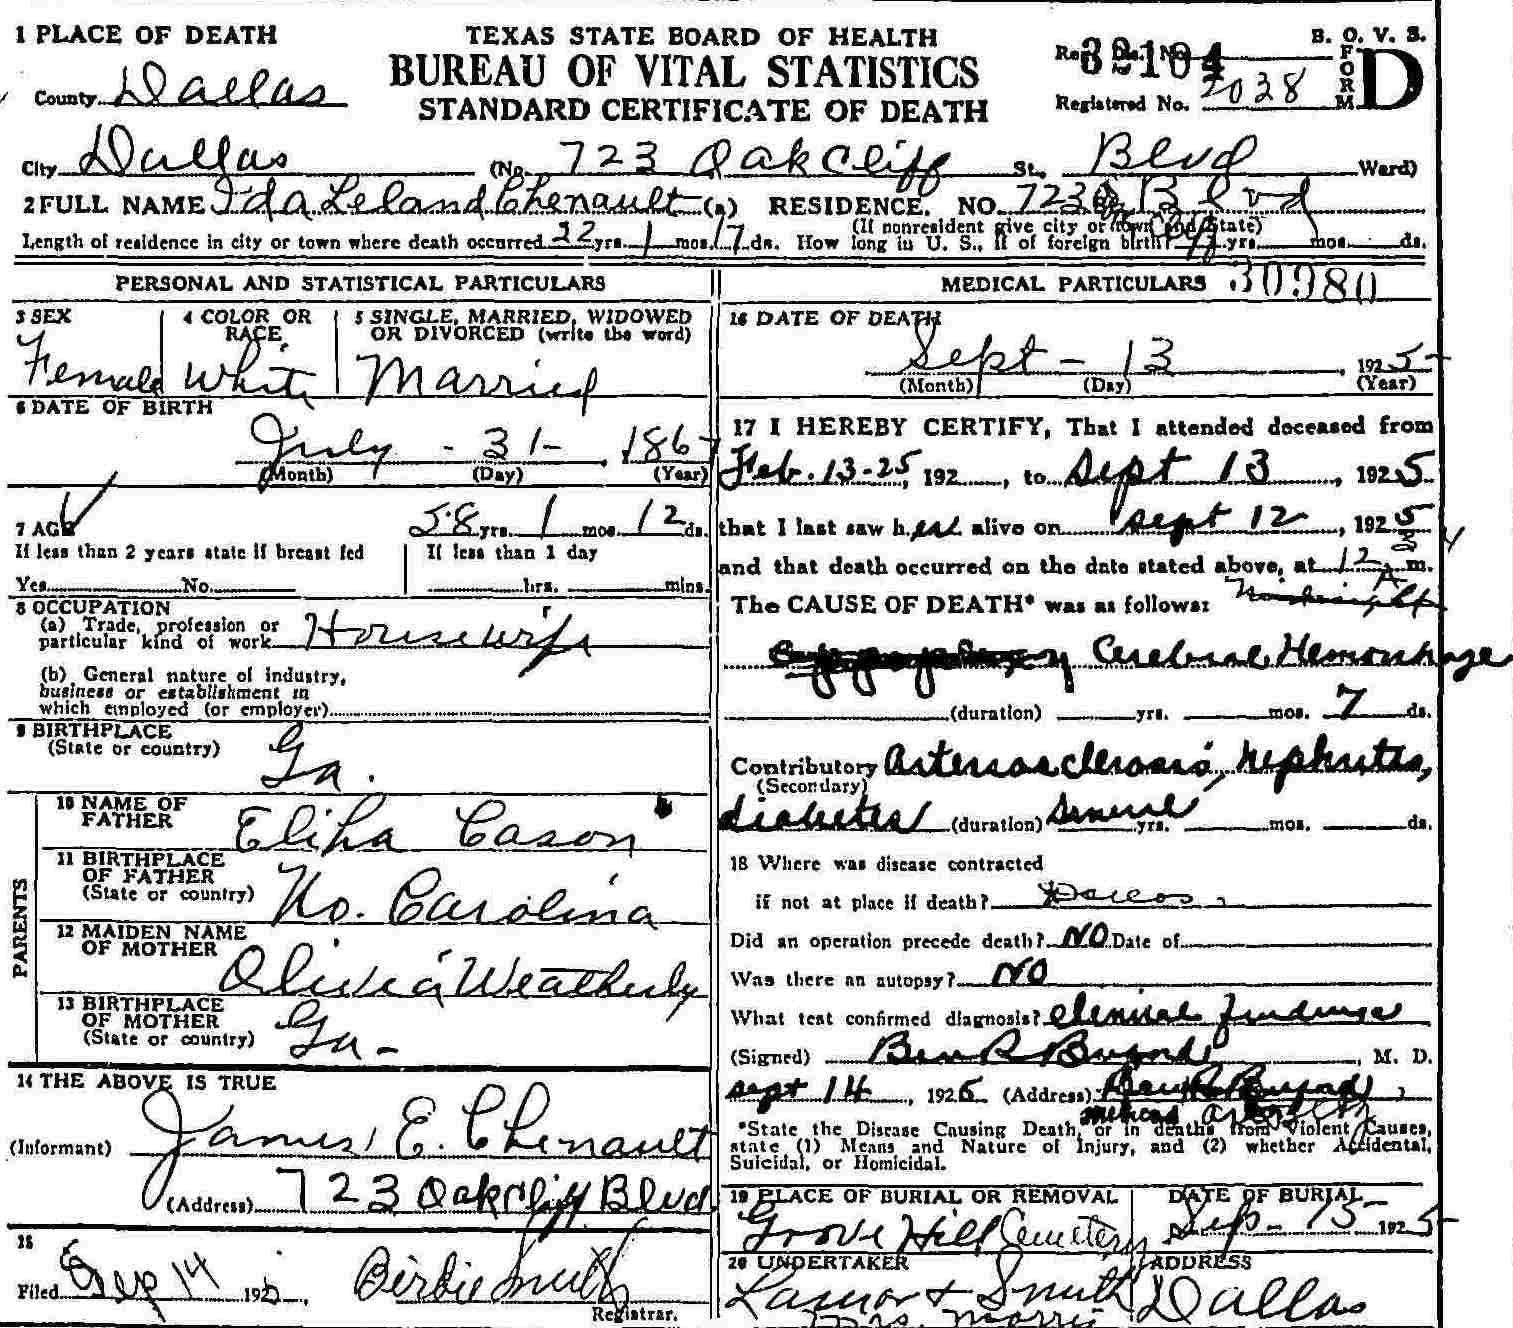 1 PLACE OF DEATH
TEXAS STATE BOARD OF HEALTH
BUREAU OF VITAL STATISTICS
STANDARD CERTIFICATE OF DEATH
B. O. V. S.
FORM D
County Dallas
Registered No. 2038
City Dallas (No. 723 Oak Cliff St., Blvd Ward)
2 FULL NAME Ida Leland Chenault (a) RESIDENCE. NO. 723 Oak Cliff Blvd
(If nonresident give city or town and State)
Length of residence in city or town where death occurred 32 yrs. 1 mos. 17 ds. How long in U. S., if of foreign birth? yrs. mos. ds.
PERSONAL AND STATISTICAL PARTICULARS
3 SEX
Female
4 COLOR OR RACE
White
5 SINGLE, MARRIED, WIDOWED OR DIVORCED (write the word)
Married
6 DATE OF BIRTH
July - 31 - 1867
(Month) (Day) (Year)
7 AGE 58 yrs. 1 mos. 12 ds.
If less than 2 years state if breast fed
Yes No
If less than 1 day
hrs. mins.
8 OCCUPATION
(a) Trade, profession or
particular kind of work Housewife
(b) General nature of industry,
business or establishment in
which employed (or employer)
9 BIRTHPLACE
(State or country) Ga.
PARENTS
10 NAME OF FATHER Eliha Cason
11 BIRTHPLACE OF FATHER
(State or country) No. Carolina
12 MAIDEN NAME OF MOTHER Olivia Weatherly
13 BIRTHPLACE OF MOTHER
(State or country) Ga -
14 THE ABOVE IS TRUE
(Informant) James E. Chenault
(Address) 723 Oak Cliff Blvd
15
Filed Sep 14 192 Birdie Smith
Registrar.
MEDICAL PARTICULARS 30980
16 DATE OF DEATH
Sept - 13 1925
(Month) (Day) (Year)
17 I HEREBY CERTIFY, That I attended deceased from
Feb. 13-25, 192 , to Sept 13, 1925
that I last saw her alive on Sept 12, 1925
and that death occurred on the date stated above, at 12 A m.
The CAUSE OF DEATH* was as follows:
Cerebral Hemorrhage
(duration) yrs. mos. 7 ds.
Contributory Arteriosclerosis, Nephritis,
(Secondary)
diabetes (duration) Several yrs. mos. ds.
18 Where was disease contracted
if not at place if death? Dallas
Did an operation precede death? NO Date of
Was there an autopsy? NO
What test confirmed diagnosis? Clinical findings
(Signed) Ben R Buford, M. D.
Sept 14, 1925 (Address)
Medical Arts Bldg
*State the Disease Causing Death, or in deaths from Violent Causes,
state (1) Means and Nature of Injury, and (2) whether Accidental,
Suicidal, or Homicidal.
19 PLACE OF BURIAL OR REMOVAL
Grove Hill Cemetery
DATE OF BURIAL
Sep - 15 1925
20 UNDERTAKER
Lamar & Smith
Mrs. Morris
ADDRESS
Dallas